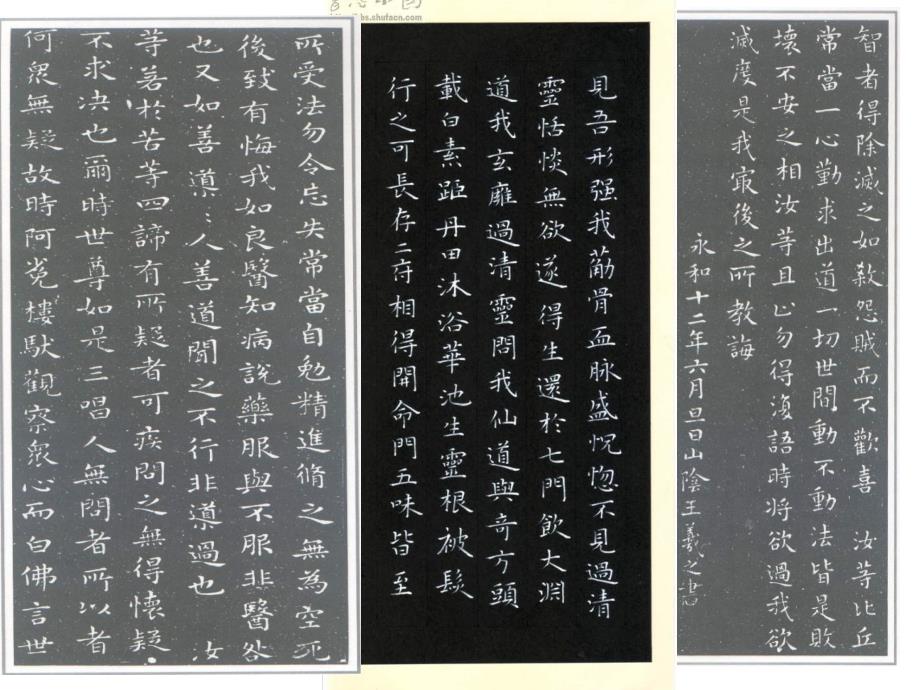 bbs.shufacn.com
智者得除滅之如殺怨賊而不歡喜 汝等比丘
常當一心勤求出道一切世間動不動法皆是敗
壞不安之相汝等且止勿得復語時將欲過我欲
滅度是我最後之所教誨
永和十二年六月旦日山陰王羲之書
見吾形强我筋骨血脉盛怳惚不見過清
靈恬惔無欲遂得生還於七門飲大淵
道我玄廱過清靈問我仙道與奇方頭
載白素距丹田沐浴華池生靈根被髮
行之可長存二府相得開命門五味皆至
所受法勿令忘失常當自勉精進脩之無為空死
後致有悔我如良醫知病說藥服與不服非醫咎
也又如善導〻人善道聞之不行非導過也 汝
等若於苦等四諦有所疑者可疾問之無得懷疑
不求決也爾時世尊如是三唱人無問者所以者
何眾無疑故時阿㝹樓馱觀察眾心而白佛言世